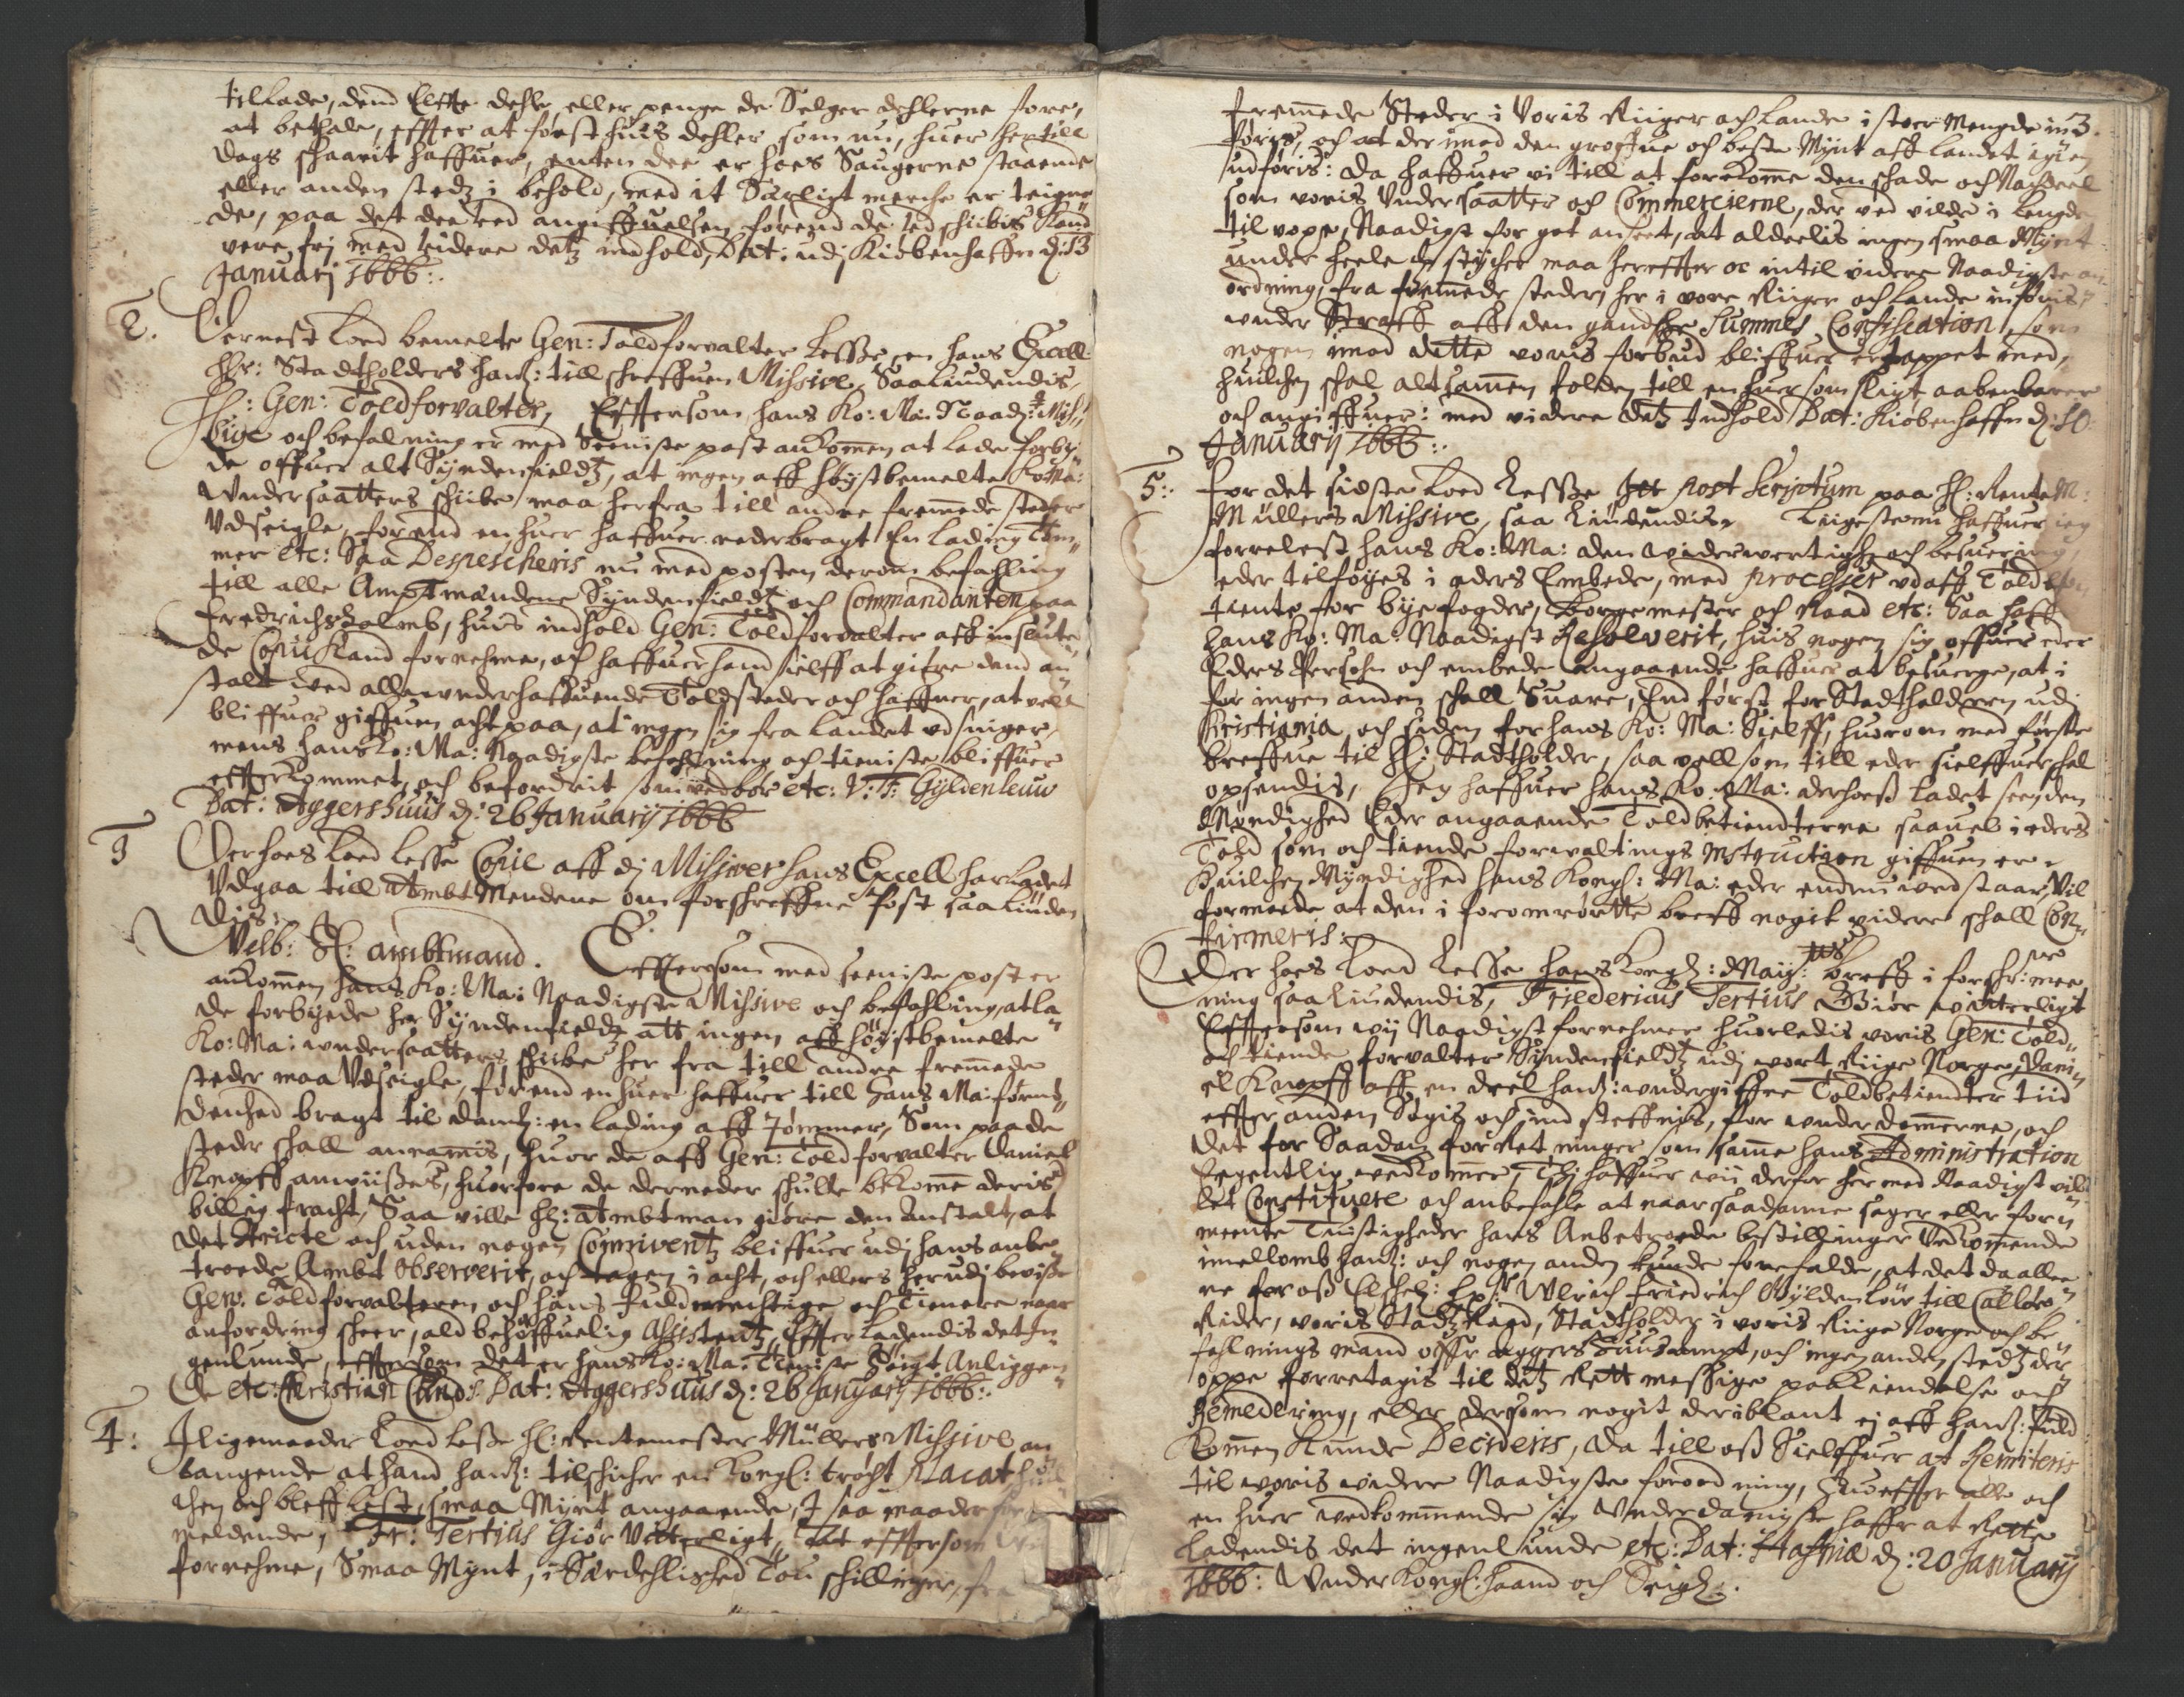 tillade, dend Elffte dehle, eller penge de Selger dehlerne fore,
at bethale, effter at først huis dehler som nu, huer her till
dags schaarit haffuer, enten dee er hoes Saugerne staaende
eller anden stedz i behold, med it Särligt merche er teigne
de, paa det dee ved angiffuelsen førend de ud schibis Kand
vere frj med videre detz indhold, Dat: udj Kiøbenhaffn d: 13
Januarj 1666:.
2. Dernest loed bemelte Gen: Toldforvalter lesse en hans Excell:
Hr: Stadtholders hanß: till schreffuen Missive, Saaliudendis,
H: Gen: Toldforvalter, Efftersom hans Ko: Ma: Naadz: Mis-
sive och befalning er med Seeniste post ankommen at lade forby-
de offuer alt Syndenfieldtz, at ingen aff høystbemelte Ko: Ma:
Undersaatters schibe maa herfra till andre fremmede steder
Udseigle, førend en huer haffuer nederbragt En lading Tøm-
mer etc: Saa Despescheris nu med posten derom befahling
till alle Amptmændene Syndenfieldtz och Commandanten paa
Fredrichshalmb, huis indhold Gen: Toldforvalter aff insluten-
de Copie Kand fornehme, och haffuer hand sielff at giøre dend an-
stalt ved alle underhaffuende Toldsteder och haffner, at vell
bliffuer giffuen acht paa, at ingen sig fra landet udsniger,
mens hans Ko: Ma: Naadigste befahlning och tieniste bliffuer
effterkommet, och befordrit som vedbør etc: U: F: Gyldenleuw
Dat: Aggershuus d: 26 Januarij 1666
3 Derhoes loed lesse Copie aff dj Missiver hans Excell har ladet
Udgaa till Ambt Mendene om forschreffne post saa liuden
dis:
Velb: H: ambtmand. Efftersom med seeniste post er
ankommen hans Ko: Ma: Naadigste Missive och befahling, at la-
de forbyede her Syndenfieldtz att ingen aff høystbemelte
Ko: Ma: undersaatters schibe her fra till andre fremmede
steder maa Udseigle, førend en huer haffuer till hans Ma: fornø-
denhed bragt til danß: en lading aff Tømmer, Som paa de
steder schall annammis, huor de aff Gen: Toldforvalter Daniel
Knopff anviißes, huorfore de derneder schulle bekome deris
billig fracht, Saa ville H: Ambtman giøre den Anstalt, at
det stricte och uden nogen Conniventz bliffuer udj hans anbe-
troede Ambt observerit, och tagen i acht, och ellers herudj beviße
Gen: Toldforvalteren, och hans fuldmechtige och Tienere naar
anfordring scheer, ald behøffuelig Assistentz, Effterladendis det in-
genlunde, efftersom det er hans Ko: Ma: Tieniste høigt Anliggen-
de etc: Dat: Aggershuus d: 26 Januarij 1666:.
4: I ligemaader loed lesse H: Rentemester Müllers Missive an
langende at hand hanß: tilschicher en Kongl: trøcht Placat,
then och bleff lest, smaa Mynt angaaende, I saa maader
meldende, Fr: Tertius Giør Vitterligt, at efftersom
fornehme, Smaa Mynt, i Særdehlished Tou schillinger, fra
3.
fremmede Steder i Voris Riiger och Lande i stoer Mengde ind
føris, och at derimod den groffue och beste Mynt aff landet igien
udføris: da haffuer vi till at forekomme den schade och Nachdeel
som voris Undersaatter och Commercierne, der ved vilde i lengde
til voxe, Naadigst for got anseet, at aldeelis ingen smaa Mynt
under heele stycher maa hereffter oc intil videre Naadigste an-
ordning, fra fremmede steder, her i vore Riiger och lande indføris,
under Straff aff den gandsche Summes Confiscation, som
nogen imod dette voris forbud bliffuer ertappet med,
huilchen schal altsammen følden till en huer som sligt aabenbarer
och angiffuer: med videre detz Indhold Dat: Kiøbenhaffn d: 10
Januarij 1666:.
5: For det sidste loed Lesse Post Scriptum paa H: Rente M:
Müllers Missive, saa liudendis. Liigesom haffuer ieg
forrelest hans Ko: Ma: den widerwertighed och besuering,
eder tilføyes i eders Embede, med processer udaff Told
tiente for byefogder, borgemester och Raad etc: Saa haff
hans Ko: Ma: Naadigst Resolverit, huis nogen sig offuer eder
Eders Persohn och embede angaaende haffuer at besuerge, at i
for ingen anden schall Suare, End først for Stadtholderen udj
Kristiania och siden for hans Ko: Ma: Sielff, huorom med første
breffue til H: Stadtholder, saa vell som till eder sielffuer schal
opsendis, Jeg haffuer hans Ko: Ma: derhoeß ladet see den
Myndighed Eder angaaende Toldbetiendterne saavel i eders
Told som och tiende forvaltings Instruction giffuen er.
Huilchen Myndighed hans Kongl: Ma: eder endnu ved staar, Vil
formoede at den i forommrørte breff nogit videre schall Con-
firmeris:
Der hoes loed lesse hans Kongl: Mays: breff i forschr: mee
ning saa liudendis, Friedericus Tertius Giør vitterligt
Efftersom wij Naadigst fornehmer huorledis voris Gen: Told-
och tiende forvalter Syndenfieldtz udj vort Riige Norge, Dani-
el Knopff aff en deel hanß: undergiffne Toldbetiendter tiid
effter anden Søgis och ind steffnis, for underdommerne, och
det for Saadan forretninger som samme hans Administration
Eegentlig vedkommer, Thj haffuer wii derfor hermed Naadigst vil-
let Constituere och anbefahle at naar saadanne sager eller for-
meente Tuistigheder hans Anbetroede bestillinger Vedkommende
imellomb hanß: och nogen anden kunde forefalde, at det da alle-
ne for oß Elschel: Hr: Ulrich Friedrich Gyldenløw till Calløe,
Rider, voris Stadtz Raad, Stadtholder i voris Riige Norge och be-
fahlnings mand offr Aggershuus ampt, och ingen anden stedtz der
oppe forretagis til detz Rett messige paakiendelse och
Remedering, eller dersom nogit deriblant ej aff hanß: fuld-
kommen Kunde Decideris, da till oß Sielffuer at Remiteris
til voris videre Naadigste forordning, Hureffter alle och
en huer vedkommende sig Underdanigste haffr at Rette
Ladendis det ingenlunde etc: Dat: Haffniæ d: 20 Januarij
1666: Under Kongl: Haand och Seigl.